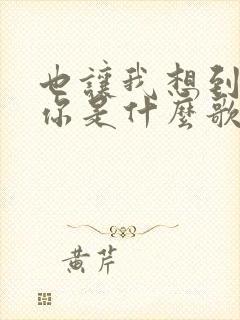 也讓我想到
你是什麼歌
黄芹